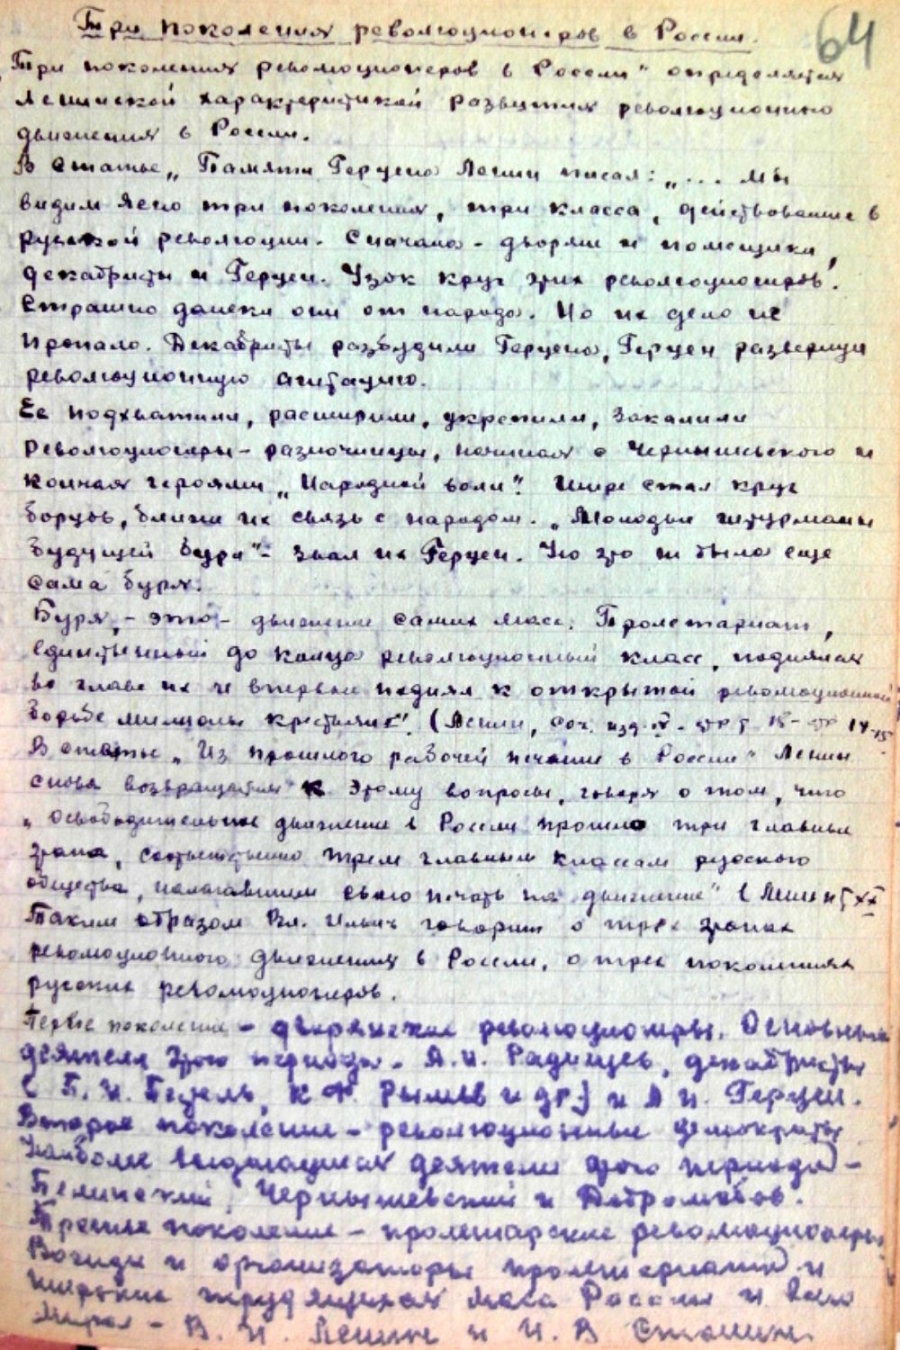 64
Три поколения революционеров в России.
„Три поколения революционеров в России" определяется
Ленинской характеристикой развития революционно
движения в России.
В статье „Памяти Герцена Ленин писал: „... Мы
видим ясно три поколения, три класса, действовавшие в
русской революции. Сначала - дворяне и помещики,
декабристы и Герцен. Узок круг этих революционеров.
Страшно далеки они от народа. Но их дело не
пропало. Декабристы разбудили Герцена, Герцен развернул
революционную агитацию.
Ее подхватили, расширили, укрепили, закалили
революционеры-разночинцы, начиная с Чернышевского и
кончая героями „Народной воли". Шире стал круг
борцов, ближе их связь с народом. „Молодые штурманы
будущей бури" - звал их Герцен. Но это не была еще
сама буря.
Буря, - это - движение самих масс. Пролетариат,
единственный до конца революционный класс, поднялся
во главе их и впервые поднял к открытой революционной
борьбе миллионы крестьян". (Ленин, соч. изд. стр 14-15
В статье „Из прошлого рабочей печати в России" Ленин
снова возвращается к этому вопросу, говоря о том, что
„освободительное движение в России прошло три главных
этапа, соответственно трем главным классам русского
общества, налагавшим свою печать на движение" (Ленин т XX
Таким образом Вл. Ильич говорит о трех этапах
революционного движения в России, о трех поколениях
русских революционеров.
Первое поколение - дворянские революционеры. Основные
деятели этого периода - А.Н. Радищев, декабристы
( П. И. Пестель, К Ф Рылеев и др.) и А И. Герцен.
Второе поколение - революционные демократы
Наиболее выдающиеся деятели этого периода -
Белинский, Чернышевский и Добролюбов.
Третье поколение - пролетарские революционеры
Вожди и организаторы пролетариата и
широких трудящихся масс России и всего
мира - В. И. Ленин и И. В Сталин.